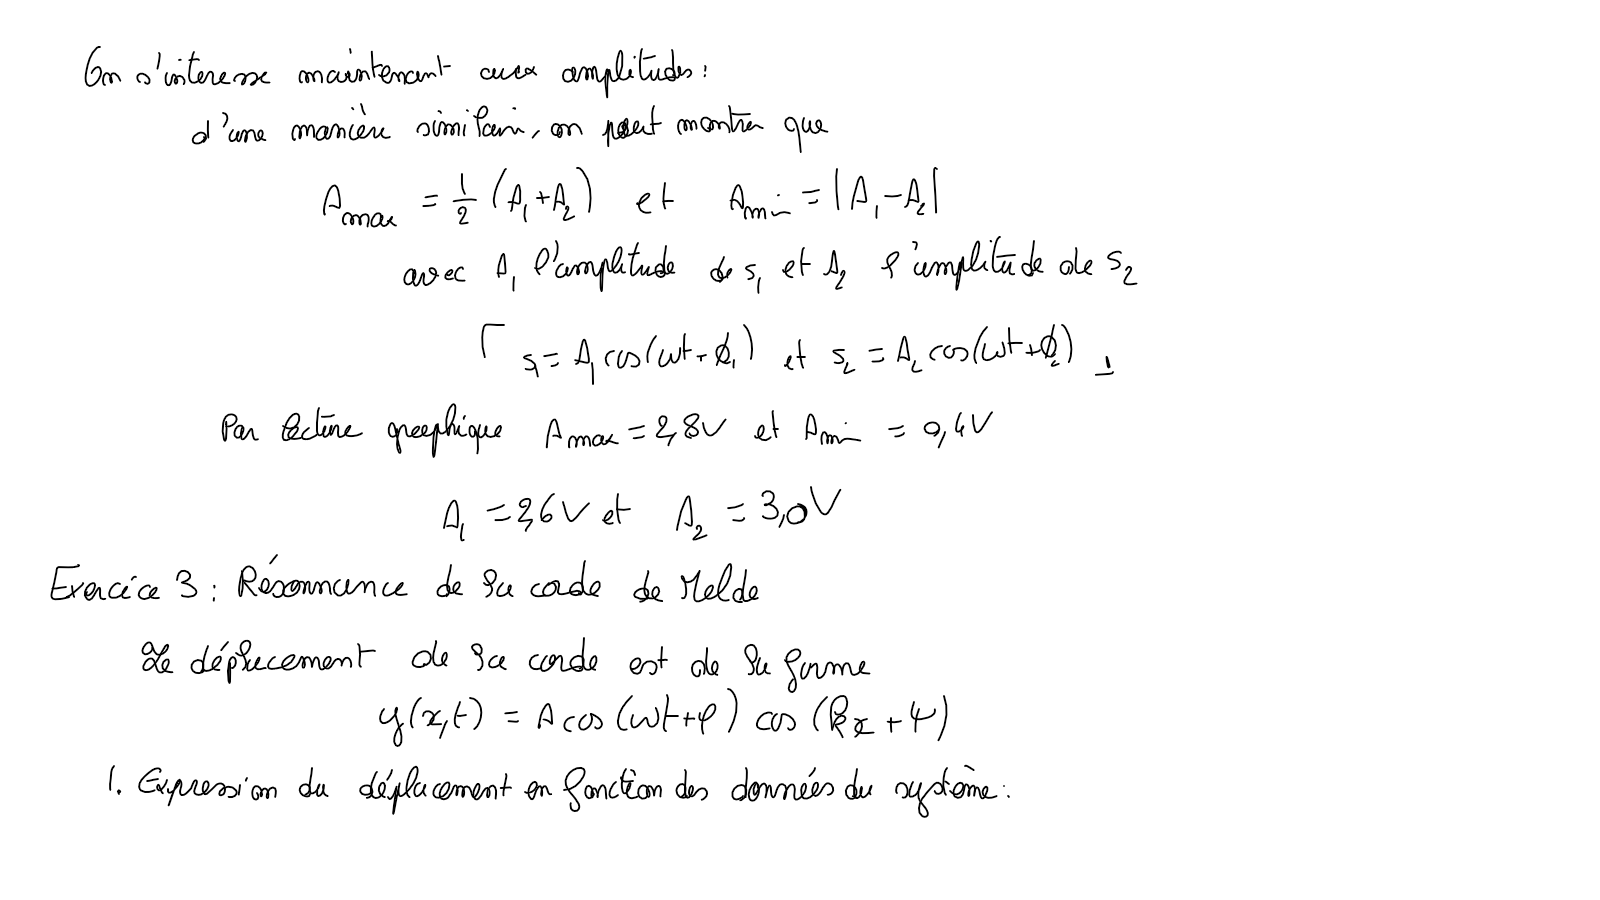 On s'interesse maintenant aux amplitudes :
d'une manière similaire, on peut montrer que
A_max = 1/2 (A₁+A₂) et A_min = |A₁-A₂|
avec A₁ l'amplitude de s₁ et A₂ l'amplitude de s₂
⌈ s₁ = A₁ cos(ωt+ϕ₁) et s₂ = A₂ cos(ωt+ϕ₂) ⊥
Par lecture graphique A_max = 2,8V et A_min = 0,4V
A₁ = 2,6V et A₂ = 3,0V
Exercice 3 : Résonnance de la corde de Melde
Le déplacement de la corde est de la forme
y(x,t) = A cos(ωt+φ) cos(kx+ψ)
1. Expression du déplacement en fonction des données du système :